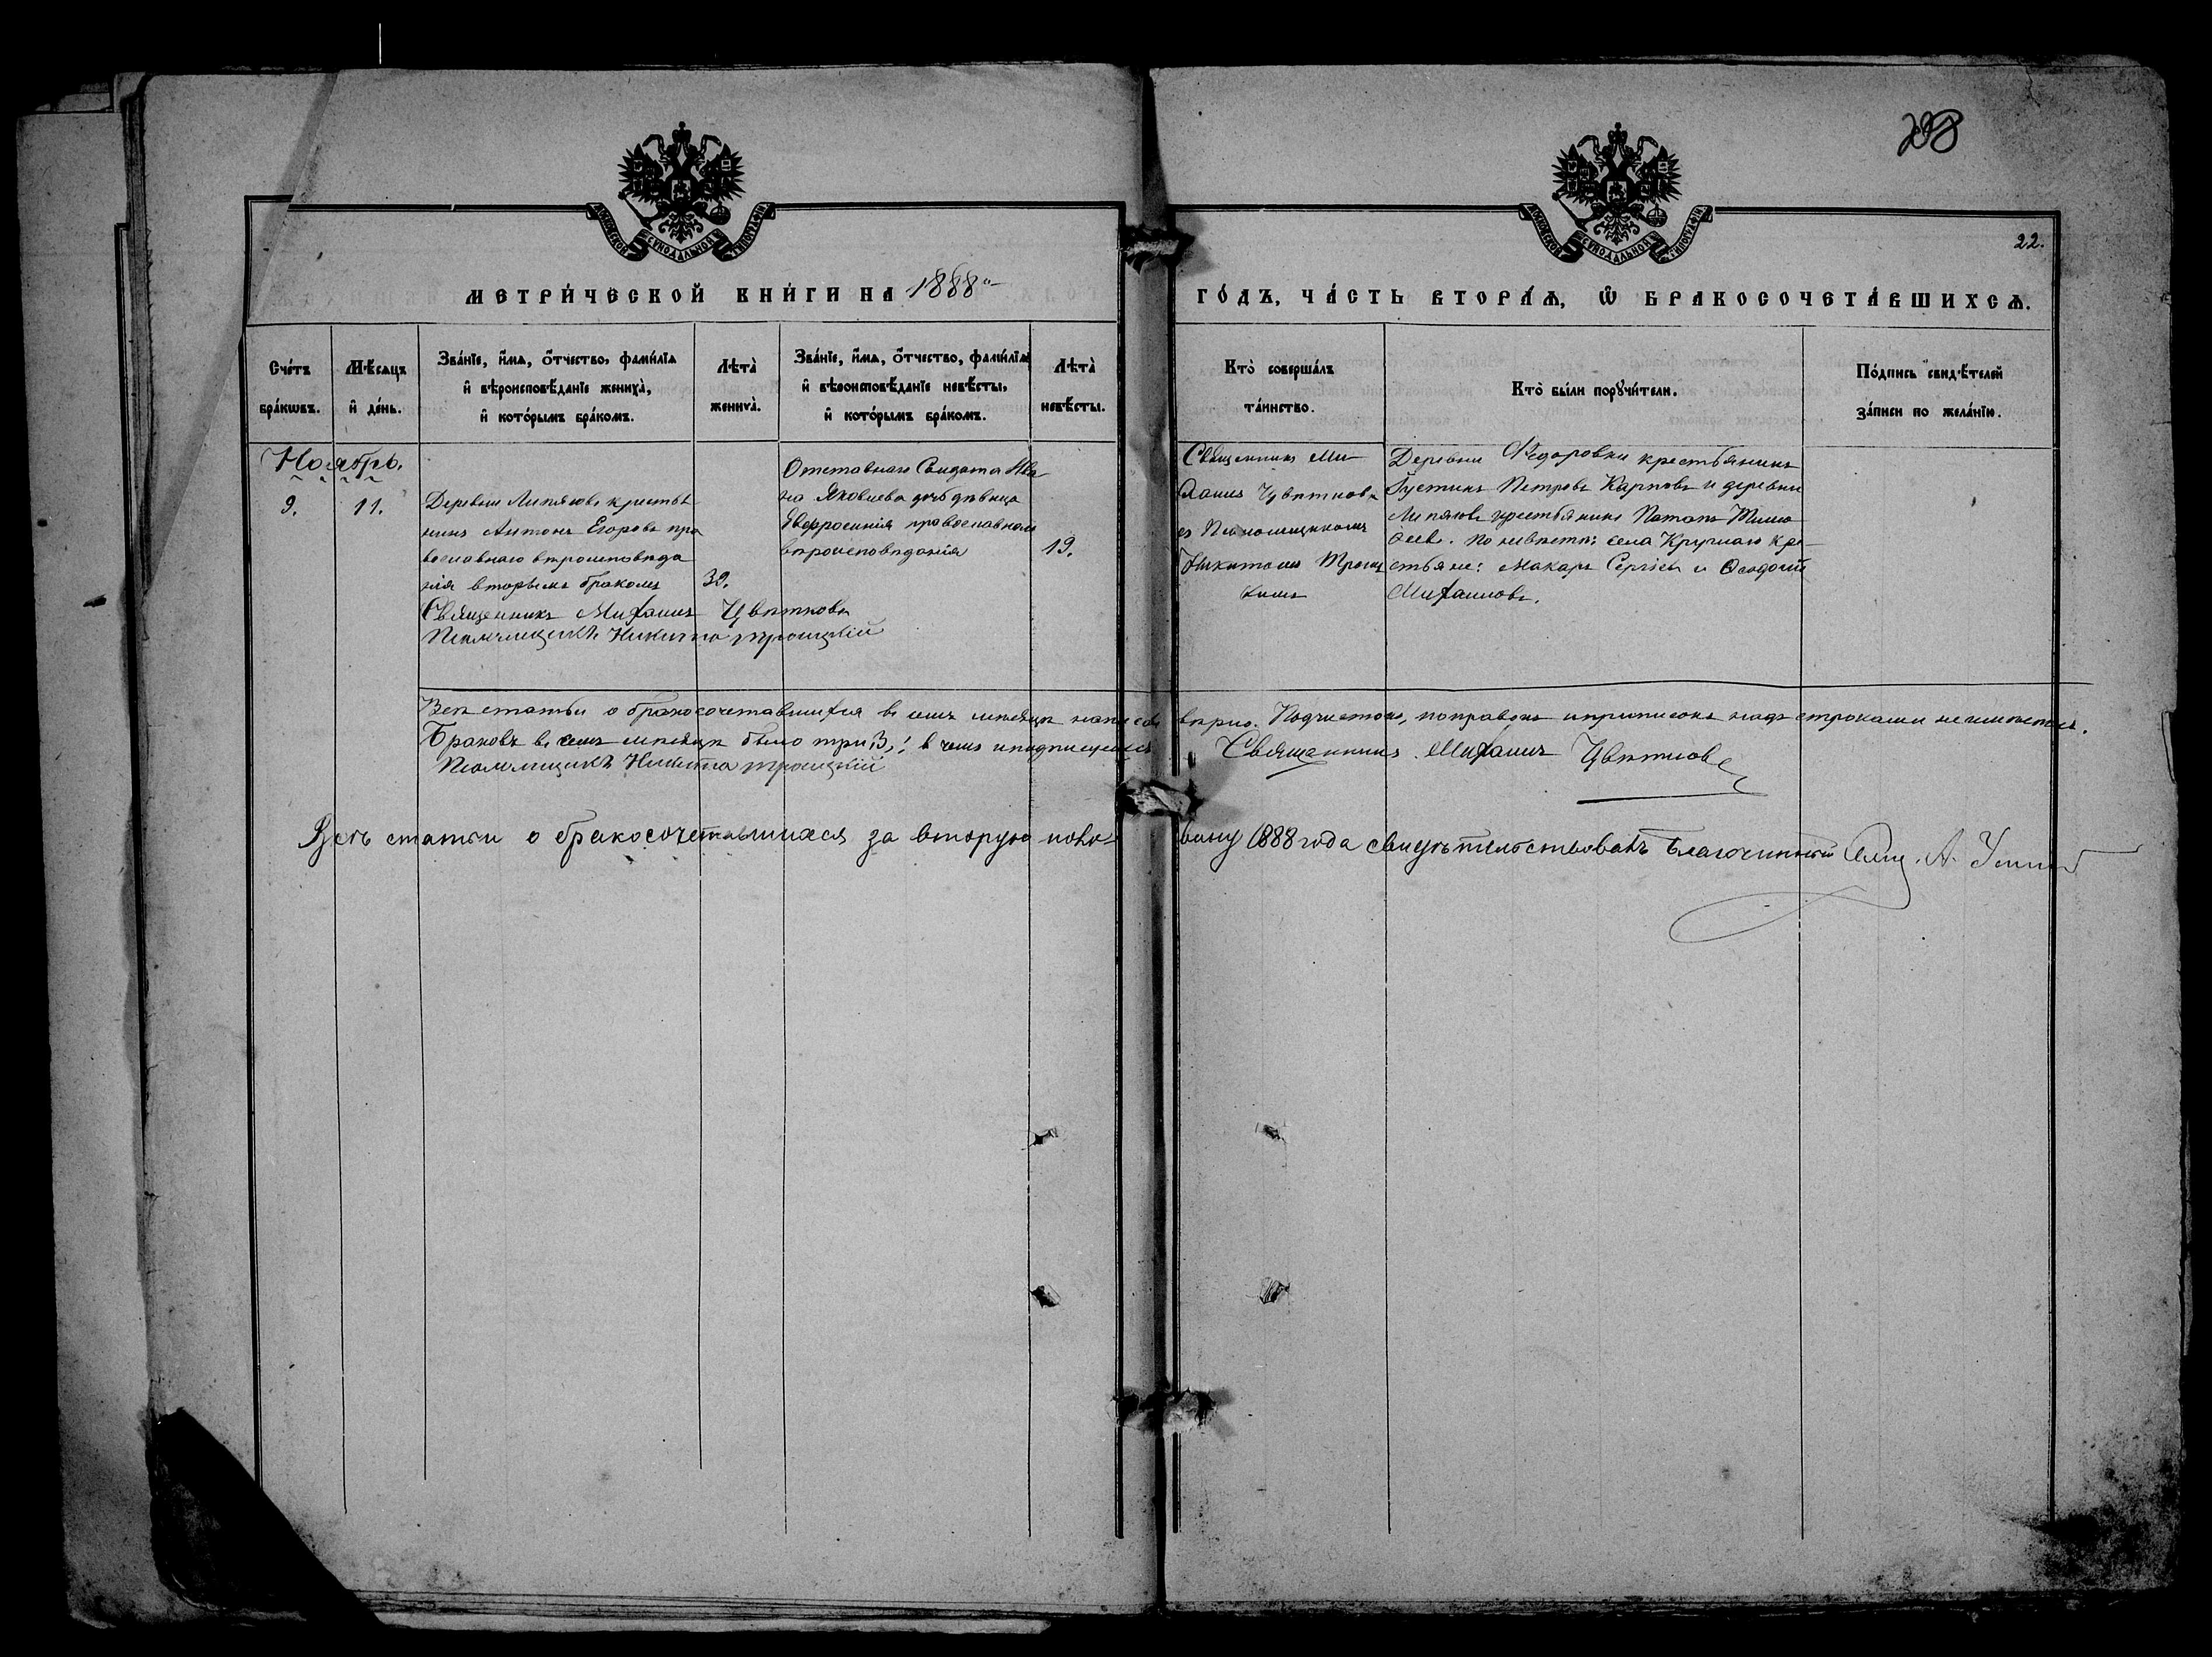 208
МОСКОВСКОЙ СѴНОДАЛЬНОЙ ТИПОГРАФІИ
МОСКОВСКОЙ СѴНОДАЛЬНОЙ ТИПОГРАФІИ
22.
МЕТРИ́ЧЕСКОЙ КНИ́ГИ НА 1888
ГО́ДЪ, ЧА́СТЬ ВТОРА́Ѧ, Ѿ БРАКОСОЧЕТА́ВШИХСѦ.
Сче́тъ бра́кѡвъ.
Мѣ́сѧцъ и҆ де́нь.
Зва́нїе, и҆́мѧ, ѻ҆́тчество, фами́лїѧ
и҆ вѣроисповѣ́данїе жениха̀,
и҆ кото́рымъ бра́комъ.
Лѣта̀ жениха̀.
Зва́нїе, и҆́мѧ, ѻ҆́тчество, фами́лїѧ
и҆ вѣроисповѣ́данїе невѣ́сты,
и҆ кото́рымъ бра́комъ.
Лѣта̀ невѣ́сты.
Кто̀ соверша́лъ
та́инство.
Кто̀ бы́ли порꙋчи́тели.
По́дпись свидѣ́телей
за́писи по жела́нїю.
Ноябрь.
9.
11.
Деревни Липяговъ крестья
нинъ Антонъ Егоровъ пра
вославнаго вѣроисповѣда
нія вторымъ бракомъ
39.
Священникъ Михаилъ Цвѣтковъ
Псаломщикъ Никита Троицкій
Отставнаго Солдата Ива
на Яковлева дочь дѣвица
Евфросинія православнаго
вѣроисповѣданія
19.
Священникъ Ми-
хаилъ Цвѣтковъ
съ Псаломщикомъ
Никитою Троиц
кимъ
Деревни Ѳедоровки крестьянинъ
Густинъ Петровъ Карповъ и деревни
Липяговъ крестьянинъ Потапъ Тимо
ѳеевъ. По невѣстѣ: села Круглаго кре-
стьяне: Макаръ Сергіевъ и Ѳеодосій
Михаиловъ.
Всѣ статьи о бракосочетавшихся въ семъ мѣсяцѣ написаны вѣрно. Подчистокъ, поправокъ и приписокъ надъ строками не имѣется.
Браковъ въ семъ мѣсяцѣ было три 3, въ чемъ и подписуемся Священникъ Михаилъ Цвѣтковъ
Псаломщикъ Никита Троицкій
Всѣ статьи о бракосочетавшихся за вторую поло- вину 1888 года свидѣтельствовалъ Благочинный А.